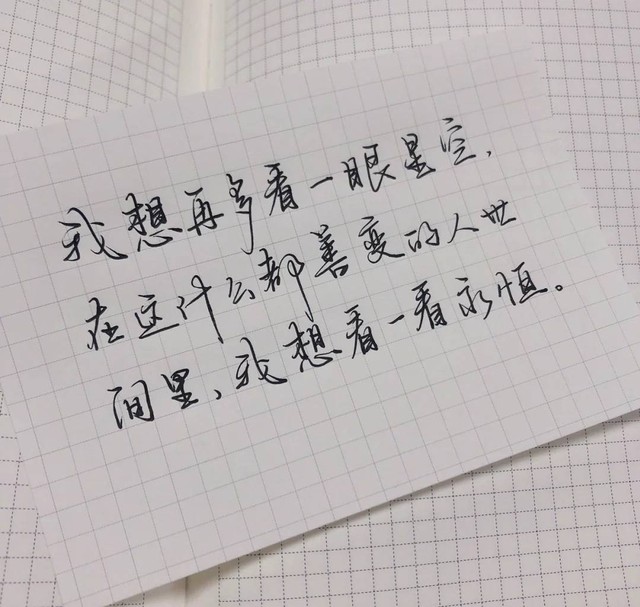 我想再多看一眼星空，
在这什么都善变的人世
间里，我想看一看永恒。